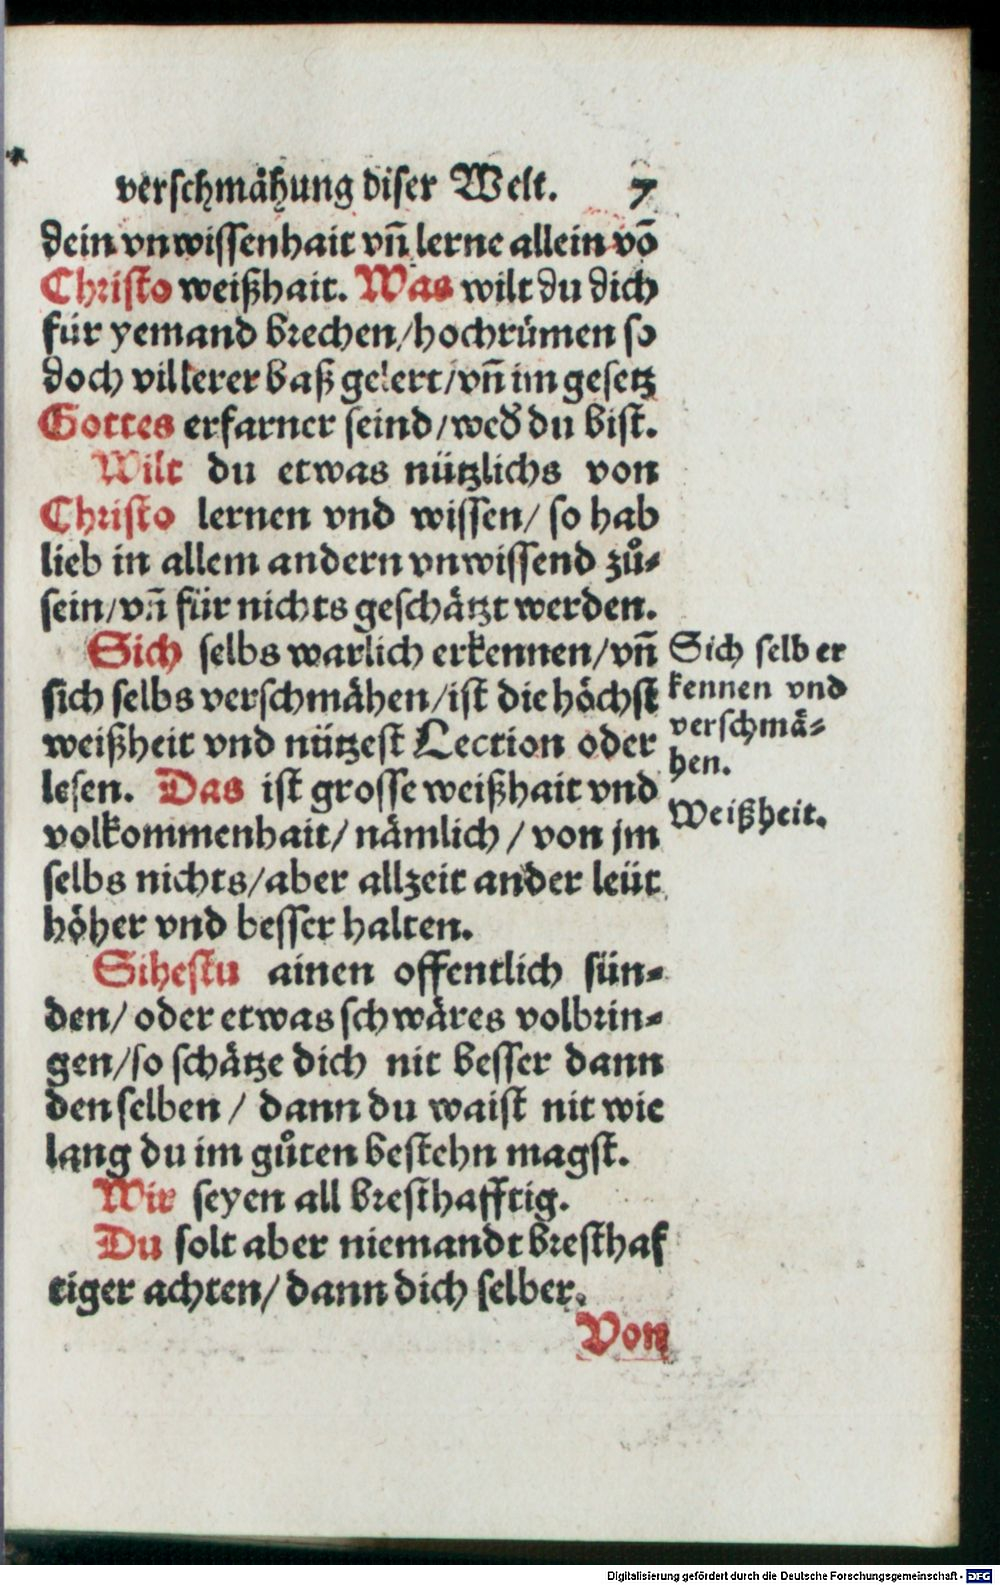 verschmåhung diser Welt. 7
dein vnwissenhait vñ lerne allein võ
Christo weißhait. Was wilt du dich
für yemand brechen/hochrümen so
doch vil lerer baß gelert/vñ im gesetz
Gottes erfarner seind/wed̄ du bist.
Wilt du etwas nützlichs von
Christo lernen vnd wissen/ so hab
lieb in allem andern vnwissend zů-
sein/vñ für nichts geschåtzt werden.
Sich selbs warlich erkennen/vñ
sich selbs verschmåhen/ist die höchst
weißheit vnd nützest Lection oder
lesen. Das ist grosse weißhait vnd
volkommenhait/ nåmlich / von jm
selbs nichts/aber allzeit ander leüt
höher vnd besser halten.
Sihestu ainen offentlich sün-
den/ oder etwas schwåres volbrin-
gen/so schåtze dich nit besser dann
den selben / dann du waist nit wie
lang du im gůten bestehn magst.
Wir seyen all bresthafftig.
Du solt aber niemandt bresthaf
tiger achten/ dann dich selber.
Von
Sich selb er
kennen vnd
verschmå-
hen.
Weißheit.
Digitalisierung gefördert durch die Deutsche Forschungsgemeinschaft - DFG